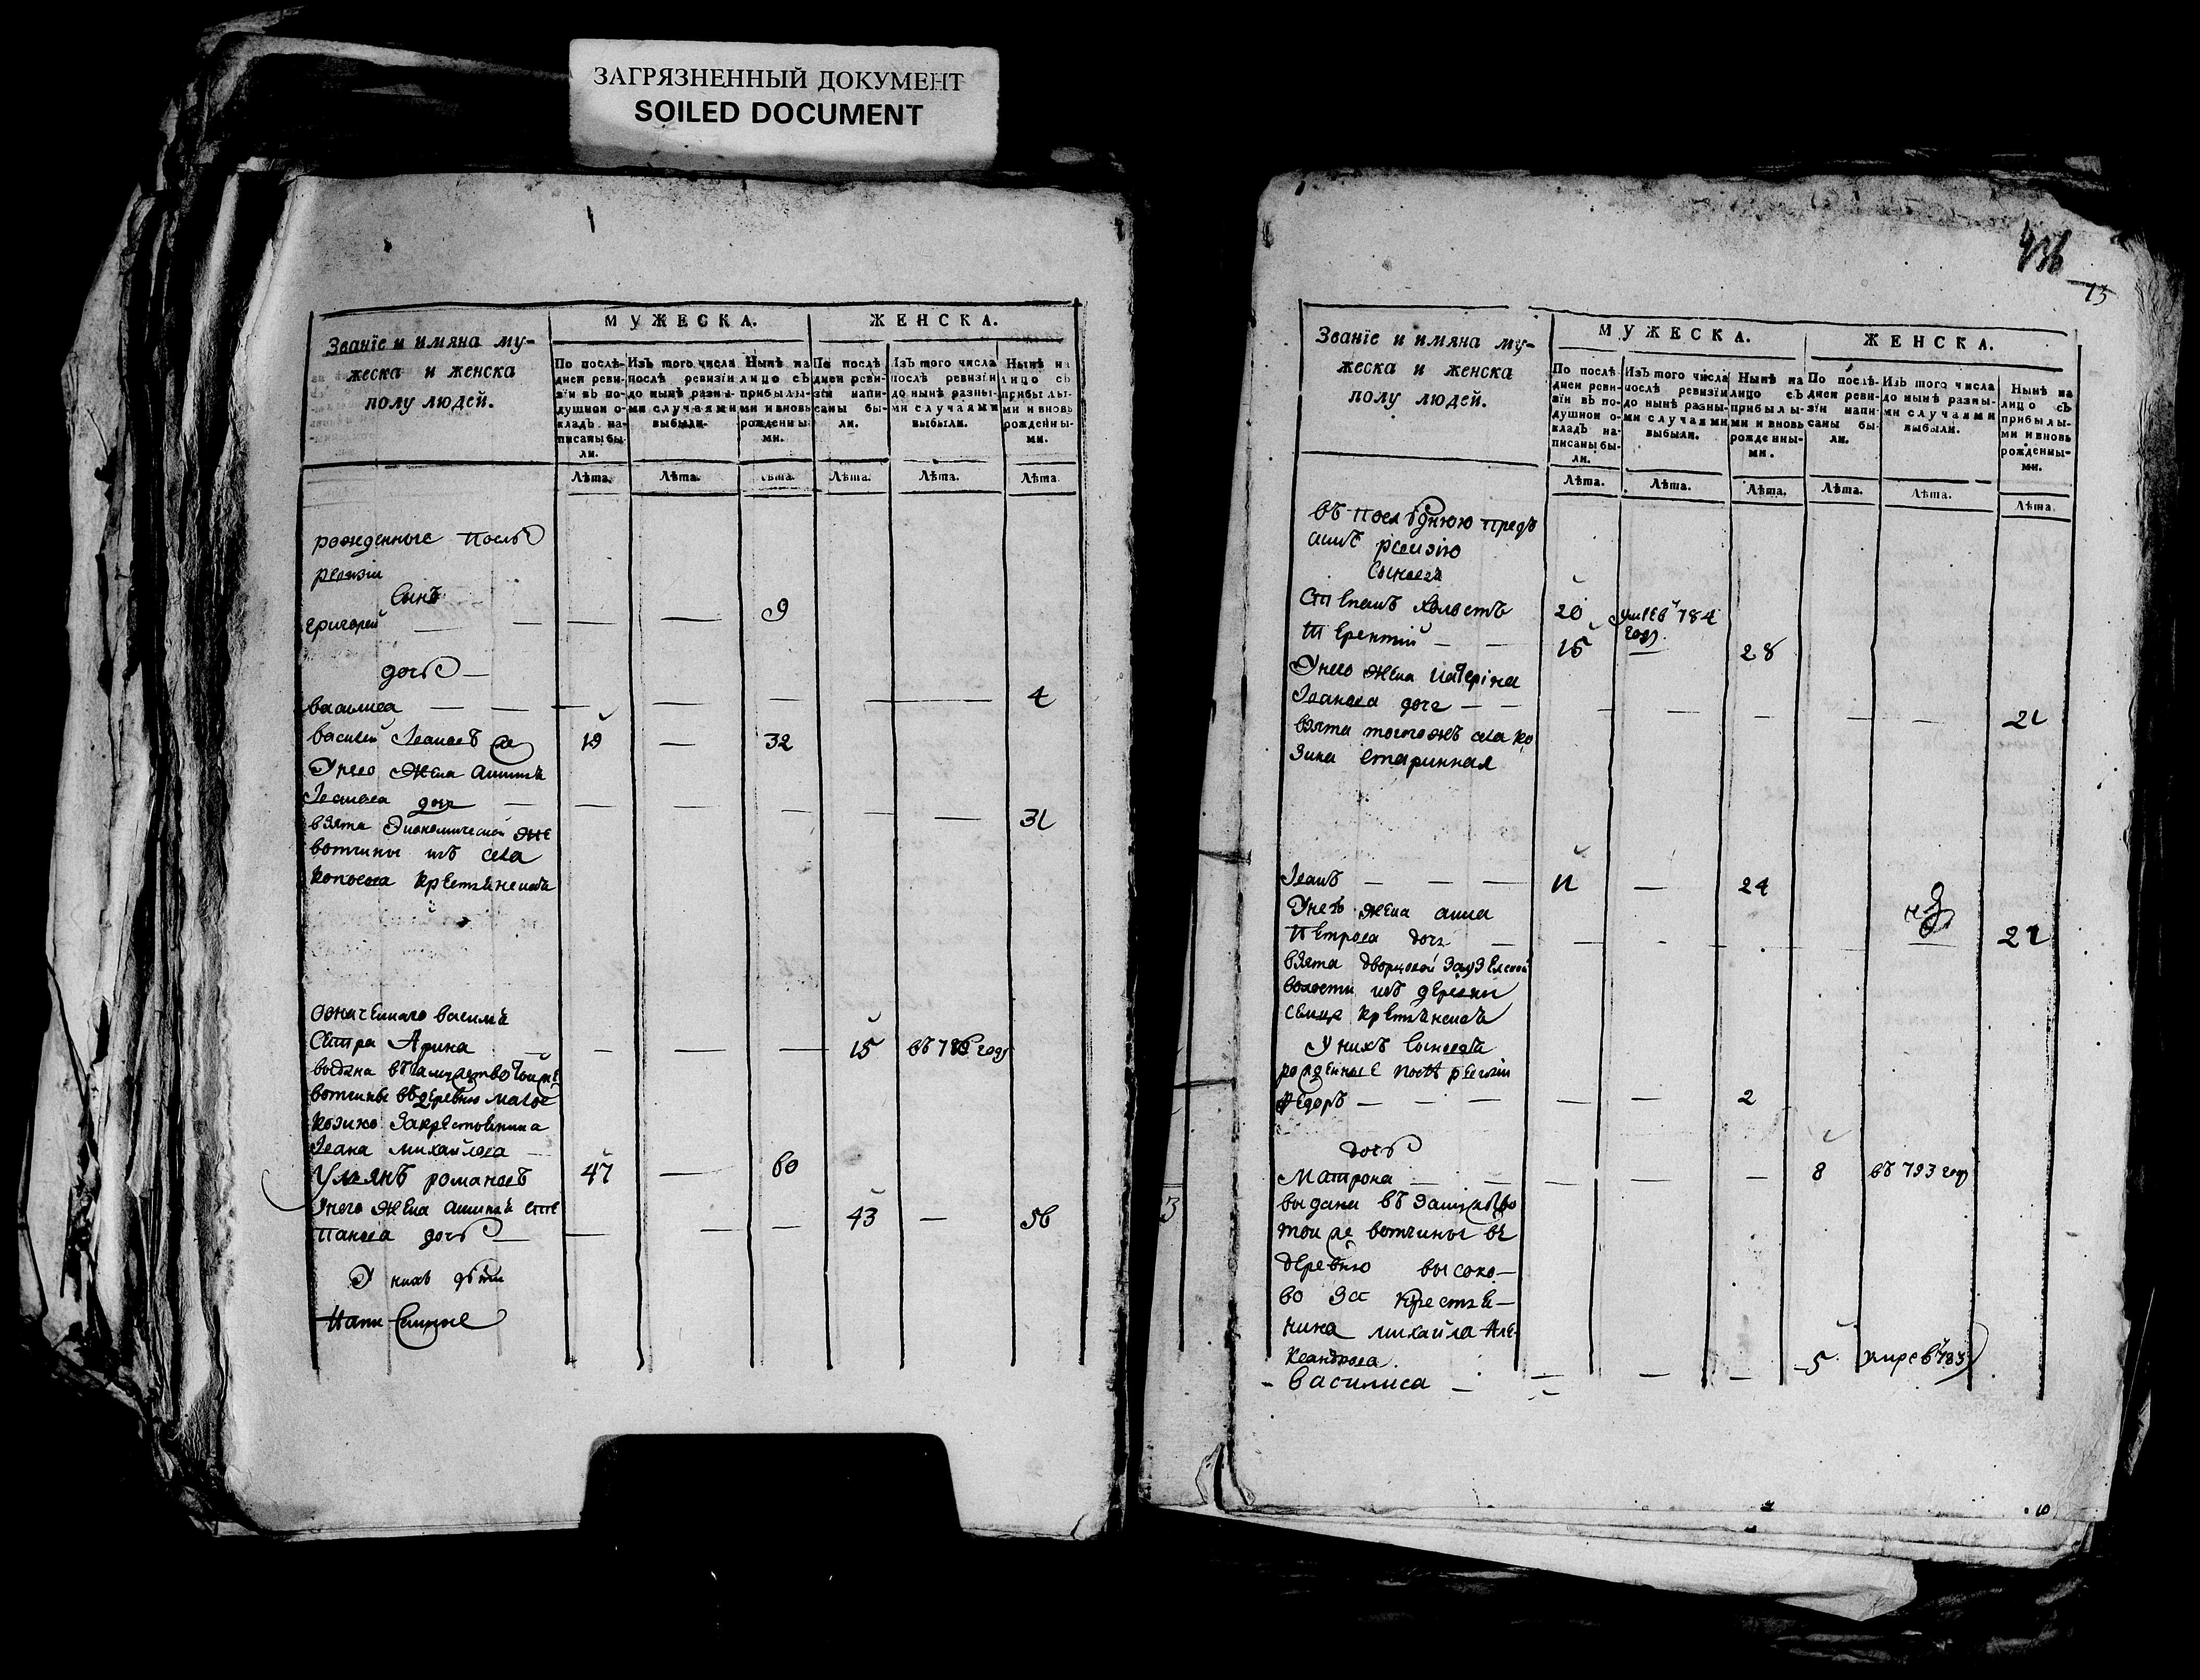 ЗАГРЯЗНЕННЫЙ ДОКУМЕНТ
SOILED DOCUMENT
Званіе и имяна му-
жеска и женска
полу людей.
МУЖЕСКА.
ЖЕНСКА.
По послѣ-
дней реви-
зіи въ по-
душном о-
кладъ на-
писаны бы-
ли.
Изъ того числа
послѣ ревизіи
до нынѣ разны-
ми случаями
выбыли.
Нынѣ на
лицо съ
прибылы-
ми и вновь
рожденны-
ми.
По послѣ
дней реви-
зіи напи-
саны бы-
ли.
Изъ того числа
послѣ ревизіи
до нынѣ разны-
ми случаями
выбыли.
Нынѣ на
лицо съ
прибылы-
ми и вновь
рожденны-
ми.
Лѣта. Лѣта. Лѣта. Лѣта. Лѣта. Лѣта.
рожденные послѣ
ревизіи
сынъ
григорей — — — — 9
дочь —
василиса — — — — — — 4
василей Ивановъ 19 — 32
У него жена
Иванова дочь — — — — — — 31
взята Экономической же
вотчины изъ села
копосова крестьянская
означеннаго василья
сестра Арина — — — 15 въ 786 году
выдана въ замужство той же
вотчины въ деревню малое
козино за крестьянина
Ивана михайлова
Ульянъ романовъ 47 — 60
У него жена аксинья сте
панова дочь — — — — 43 — 56
У нихъ дѣти
написанные
436
13
Званіе и имяна му-
жеска и женска
полу людей.
МУЖЕСКА.
ЖЕНСКА.
По послѣ-
дней реви-
зіи въ по-
душном о-
кладъ на-
писаны бы-
ли.
Изъ того числа
послѣ ревизіи
до нынѣ разны-
ми случаями
выбыли.
Нынѣ на
лицо съ
прибылы-
ми и вновь
рожденны-
ми.
По послѣ-
дней реви-
зіи напи-
саны бы-
ли.
Изъ того числа
до нынѣ разны-
ми случаями
выбыли.
Нынѣ на
лицо съ
прибылы-
ми и вновь
рожденны-
ми.
Лѣта. Лѣта. Лѣта. Лѣта. Лѣта. Лѣта.
въ последнюю предъ
симъ ревизію
сыновья
Степанъ холостъ 20 умре в 784
году
Терентій — — 15 — 28
У него жена катеріна
Іванова дочь — — — — — — — 21
взята тогожъ села ко
зина старинная
Іванъ — — — 11 — 24
У него жена анна
Петрова дочь — — — — — — 21
взята дворцовой заузелской
волости изъ деревни
крестьянская
У нихъ сыновья
рожденные после ревизіи
Федоръ — — — — — 2
дочь
Матрона — — — — — 8 въ 793 году
выдана въ замужство
той же вотчины въ
деревню высоко-
во за крестья-
нина михайла Але-
ксандрова
- василиса — — — — 5 умре в 783
10